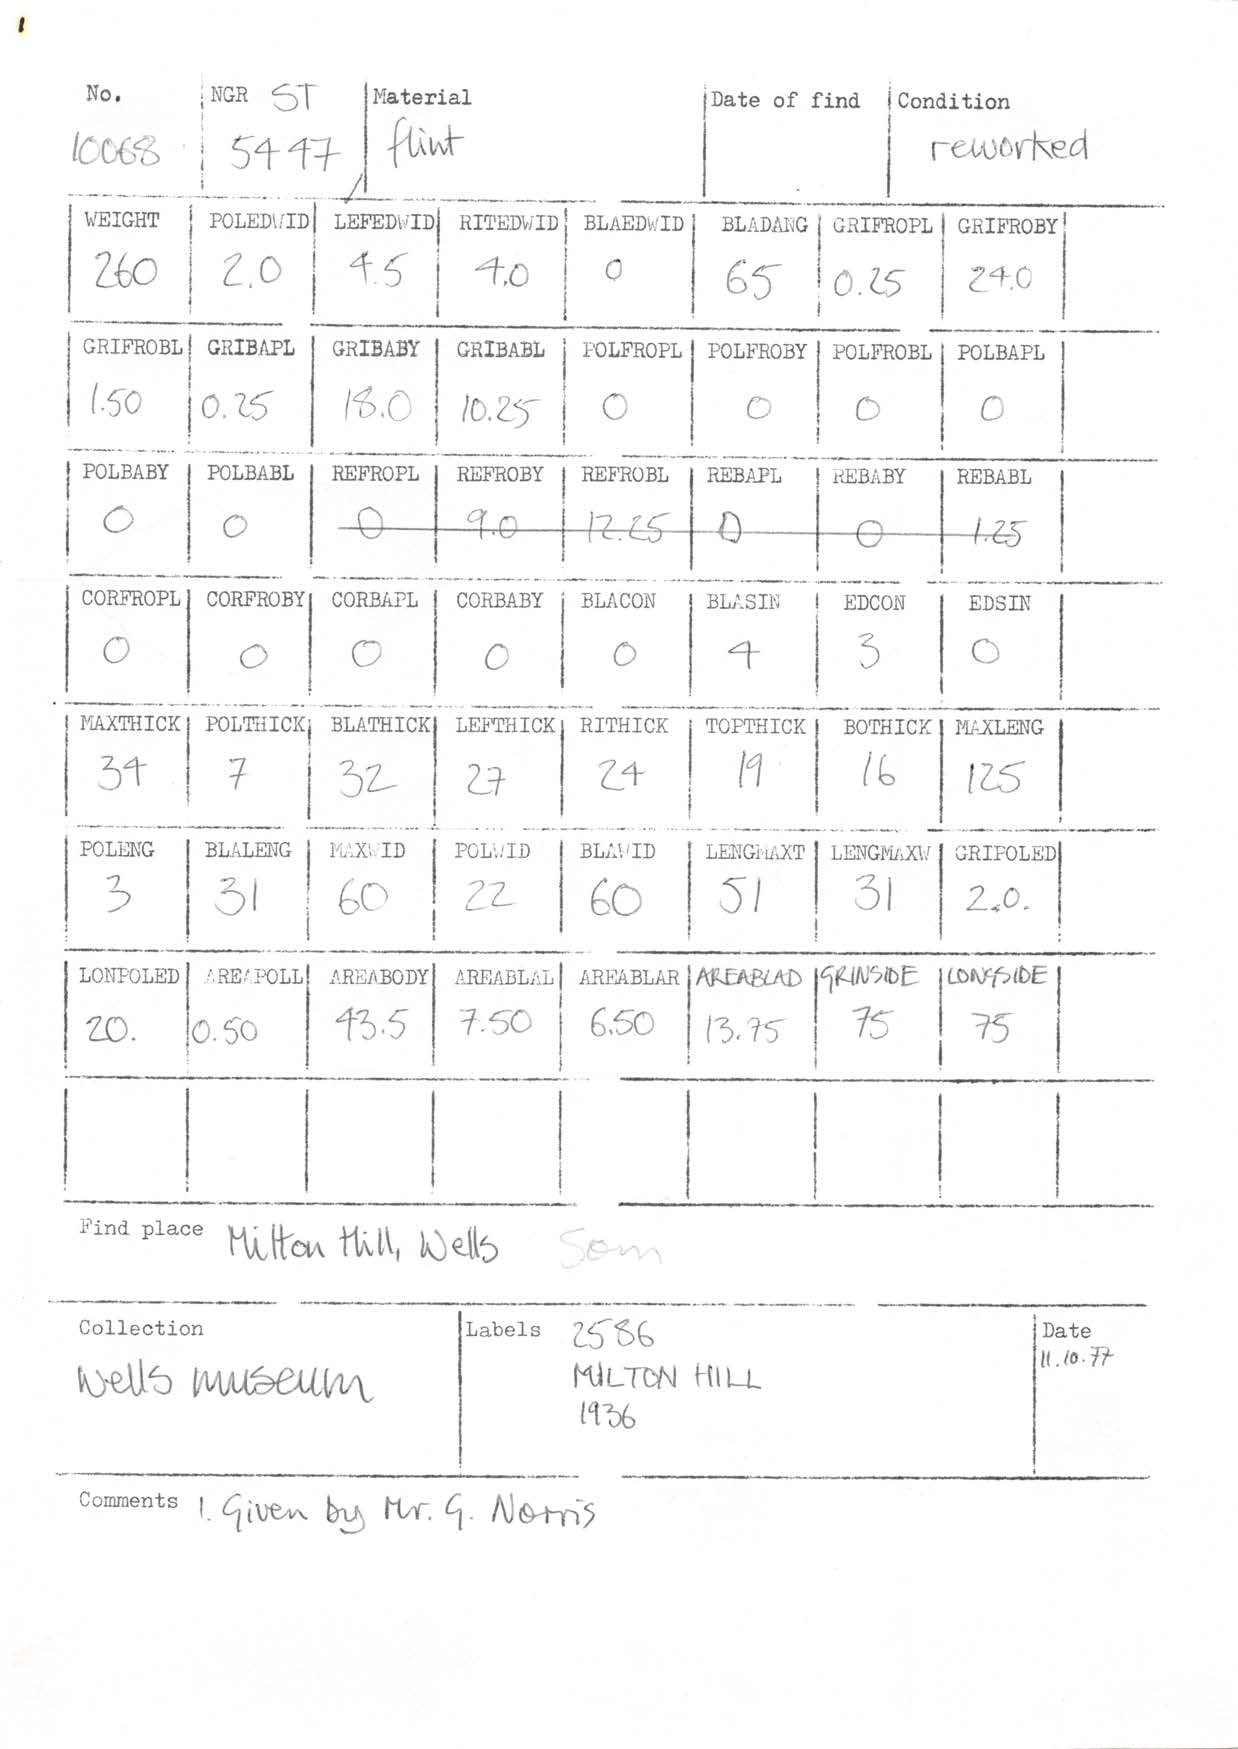 1
No. NGR ST Material Date of find Condition
10068 5447 flint reworked
WEIGHT POLEDWID LEFEDWID RITEDWID BLAEDWID BLADANG GRIFROPL GRIFROBY
260 2.0 4.5 4.0 0 65 0.25 24.0
GRIFROBL GRIBAPL GRIBABY GRIBABL POLFROPL POLFROBY POLFROBL POLBAPL
1.50 0.25 18.0 10.25 0 0 0 0
POLBABY POLBABL REFROPL REFROBY REFROBL REBAPL REBABY REBABL
0 0 0 9.0 12.25 0 0 1.25
CORFROPL CORFROBY CORBAPL CORBABY BLACON BLASIN EDCON EDSIN
0 0 0 0 0 4 3 0
MAXTHICK POLTHICK BLATHICK LEFTHICK RITHICK TOPTHICK BOTHICK MAXLENG
34 7 32 27 24 19 16 125
POLENG BLALENG MAXWID POLWID BLAWID LENGMAXT LENGMAXW GRIPOLED
3 31 60 22 60 51 31 2.0.
LONPOLED AREAPOLL AREABODY AREABLAL AREABLAR AREABLAD GRINSIDE LONGSIDE
20. 0.50 43.5 7.50 6.50 13.75 75 75
Find place Milton Hill, Wells Som
Collection Labels 2586 Date
Wells museum MILTON HILL 11.10.77
1936
Comments 1. Given by Mr. G. Norris